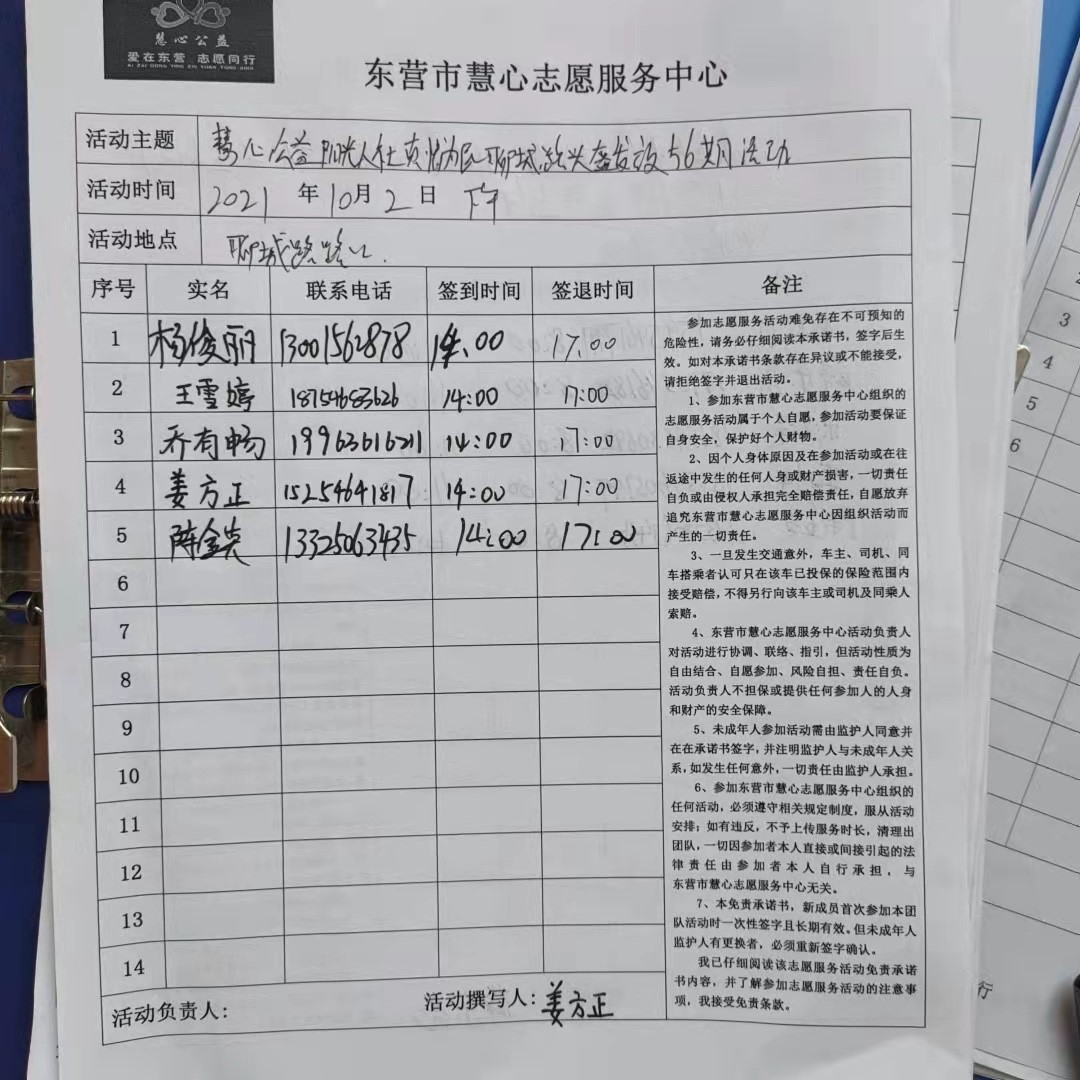 慧心公益
爱在东营 志愿同行
AI ZAI DONG YING ZHI YUAN TONG XING
东营市慧心志愿服务中心
活动主题 慧心公益阳光人社真情为民聊城路兴盛发放56期活动
活动时间 2021 年 10月 2 日 下午
活动地点 聊城路路口.
序号 实名 联系电话 签到时间 签退时间 备注
1 杨俊丽 13001562878 14.00 17.00
2 王雪婷 18754683626 14:00 17:00
3 乔有畅 19963616211 14:00 17:00
4 姜方正 15254641817 14:00 17:00
5 陈金 13325063435 14:00 17:00
6
7
8
9
10
11
12
13
14
参加志愿服务活动难免存在不可预知的
危险性，请务必仔细阅读本承诺书，签字后生
效。如对本承诺书条款存在异议或不能接受，
请拒绝签字并退出活动。
1、参加东营市慧心志愿服务中心组织的
志愿服务活动属于个人自愿，参加活动要保证
自身安全，保护好个人财物。
2、因个人身体原因及在参加活动或在往
返途中发生的任何人身或财产损害，一切责任
自负或由侵权人承担完全赔偿责任，自愿放弃
追究东营市慧心志愿服务中心因组织活动而
产生的一切责任。
3、一旦发生交通意外，车主、司机、同
车搭乘者认可只在该车已投保的保险范围内
接受赔偿，不得另行向该车主或司机及同乘人
索赔。
4、东营市慧心志愿服务中心活动负责人
对活动进行协调、联络、指引，但活动性质为
自由结合、自愿参加、风险自担、责任自负。
活动负责人不担保或提供任何参加人的人身
和财产的安全保障。
5、未成年人参加活动需由监护人同意并
在在承诺书签字，并注明监护人与未成年人关
系，如发生任何意外，一切责任由监护人承担。
6、参加东营市慧心志愿服务中心组织的
任何活动，必须遵守相关规定制度，服从活动
安排；如有违反，不予上传服务时长，清理出
团队，一切因参加者本人直接或间接引起的法
律责任由参加者本人自行承担，与
东营市慧心志愿服务中心无关。
7、本免责承诺书，新成员首次参加本团
队活动时一次性签字且长期有效。但未成年人
监护人有更换者，必须重新签字确认。
我已仔细阅读该志愿服务活动免责承诺
书内容，并了解参加志愿服务活动的注意事
项，我接受免责条款。
活动负责人： 活动撰写人：姜方正
3
4
5
6
行